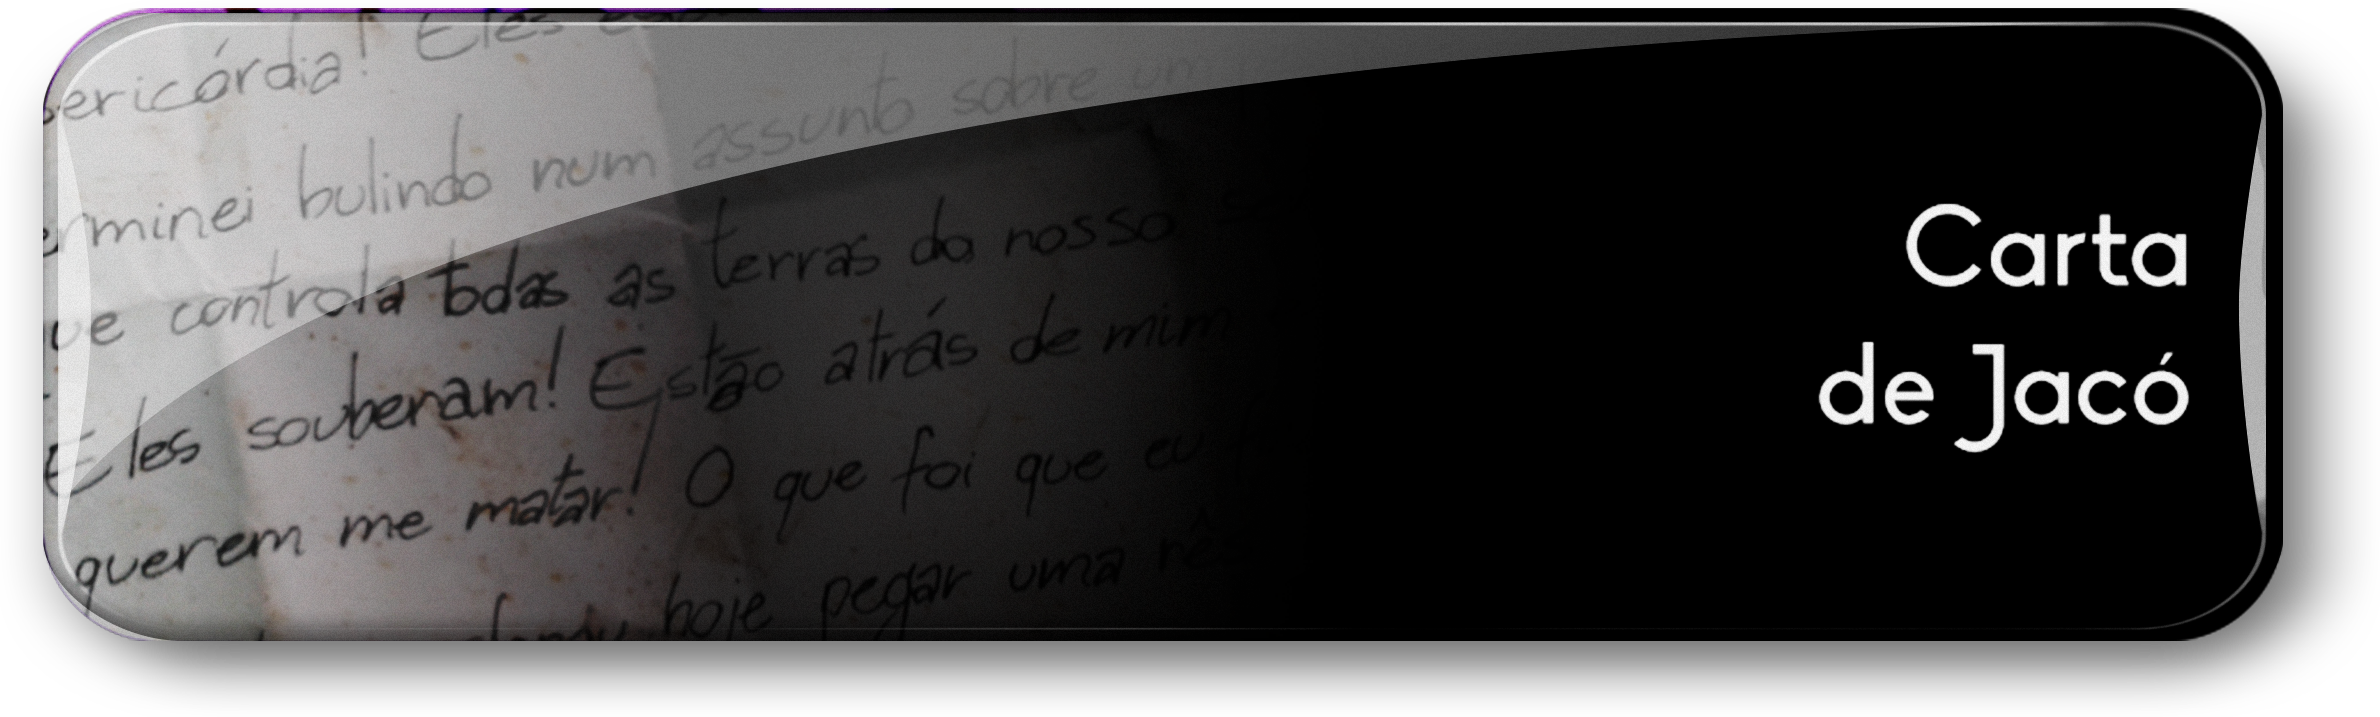 sericórdia! Eles
erminei bulindo num assunto sobre um
ue controla todas as terras do nosso
Eles souberam! Estão atrás de mim
querem me matar! O que foi que eu
hoje pegar uma
Carta
de Jacó